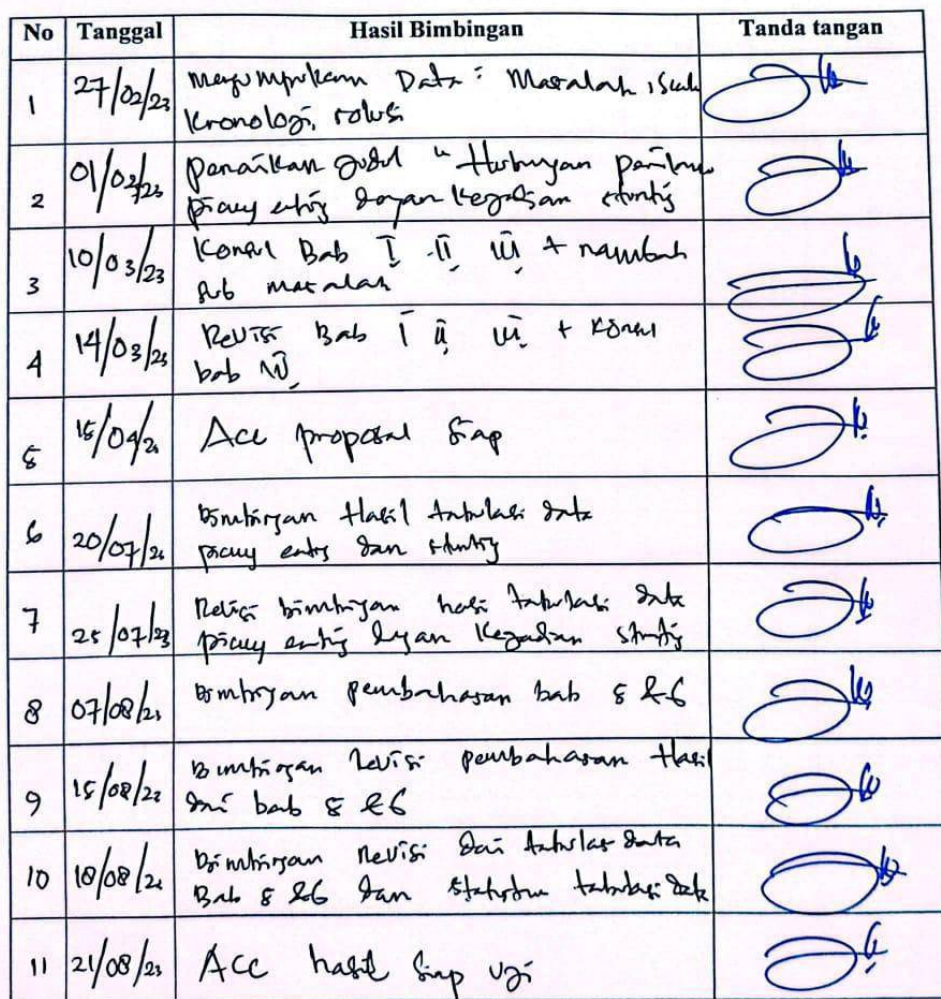 No Tanggal Hasil Bimbingan Tanda tangan
1 27/02/23 Mengumpulkan Data : Masalah, Skala
Kronologi, solusi
2 01/03/23 penarikan judul " Hubungan perilaku
picky eating dengan kejadian stunting
3 10/03/23 Konsul Bab I II III + nambah
sub masalah
4 14/03/23 Revisi Bab I II III + Konsul
bab IV
5 15/04/23 Acc proposal Siap
6 20/07/23 Bimbingan Hasil tabulasi data
picky eating dan stunting
7 25/07/23 Revisi bimbingan hasil tabulasi data
picky eating dengan Kejadian stunting
8 07/08/23 Bimbingan pembahasan bab 5 & 6
9 15/08/23 Bimbingan Revisi pembahasan Hasil
dari bab 5 & 6
10 18/08/23 Bimbingan Revisi dari tabulasi data
Bab 5 & 6 dan tabulasi data
11 21/08/23 Acc hasil Siap uji